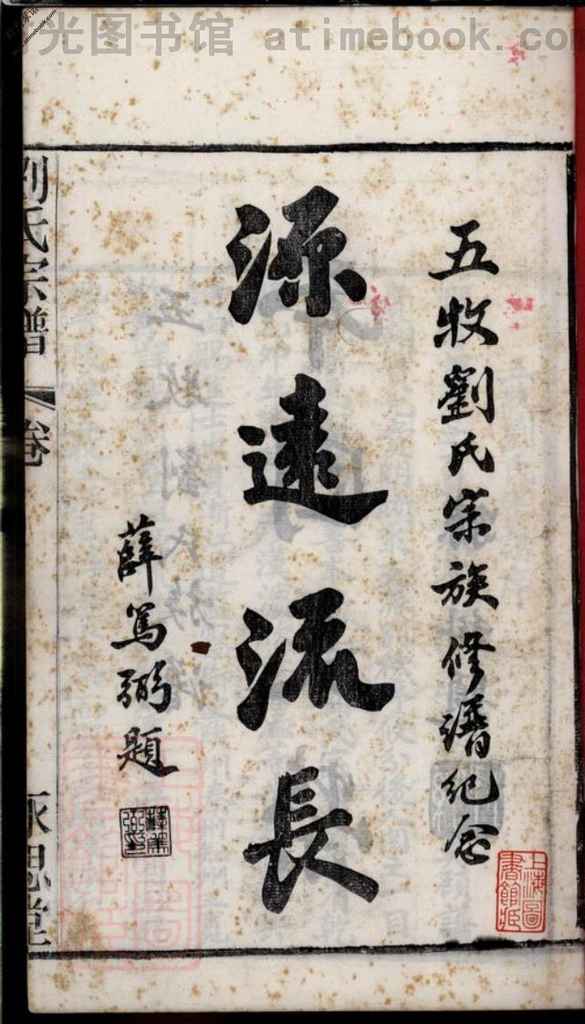 光图书馆 atimebook.com
五牧劉氏宗族修譜紀念
源遠流長
薛篤弼題
劉氏宗譜
卷
永思堂
上海圖書館藏